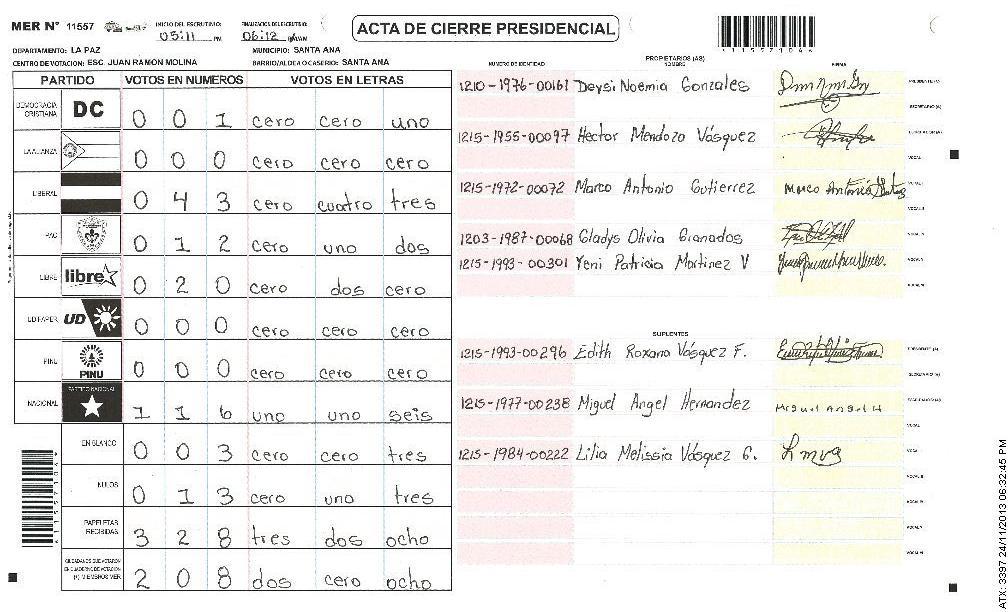 MER Nº 11557 INICIO DEL ESCRUTINIO: 05:11 PM FINALIZACION DEL ESCRUTINIO: 06:12
ACTA DE CIERRE PRESIDENCIAL
DEPARTAMENTO: LA PAZ MUNICIPIO: SANTA ANA
CENTRO DE VOTACION: ESC. JUAN RAMON MOLINA BARRIO/ALDEA O CASERIO: SANTA ANA
PARTIDO VOTOS EN NUMEROS VOTOS EN LETRAS
DEMOCRACIA CRISTIANA DC 0 0 1 cero cero uno
LA ALIANZA 0 0 0 cero cero cero
LIBERAL 0 4 3 cero cuatro tres
PAC 0 1 2 cero uno dos
LIBRE libre 0 2 0 cero dos cero
UD/FAPER UD 0 0 0 cero cero cero
PINU PINU 0 0 0 cero cero cero
NACIONAL PARTIDO NACIONAL 1 1 6 uno uno seis
EN BLANCO 0 0 3 cero cero tres
NULOS 0 1 3 cero uno tres
PAPELETAS RECIBIDAS 3 2 8 tres dos ocho
CIUDADANOS QUE VOTARON EN CUADERNO DE VOTACION (+) MIEMBROS MER 2 0 8 dos cero ocho
PROPIETARIOS (AS)
NUMERO DE IDENTIDAD NOMBRE FIRMA
1210-1976-00161 Deysi Noemia Gonzales
1215-1955-00097 Hector Mendozo Vásquez
1215-1972-00072 Marco Antonio Gutierrez
1203-1987-00068 Gladys Olivia Granados
1215-1993-00301 Yeni Patricia Martinez V
SUPLENTES
1215-1993-00296 Edith Roxana Vásquez F.
1215-1977-00238 Miguel Angel Hernandez Miguel Angel H
1215-1984-00222 Lilia Melissia Vásquez G. Lmvg
ATX: 3397 24/11/2013 06:32:45 PM